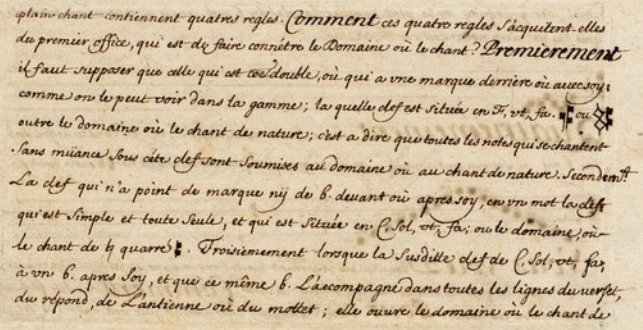 plain chant contiennent quatres regles. Comment ces quatre regles s'acquitent-elles
du premier office, qui est de faire connétre le Domaine où le chant? Premierement
il faut supposer que celle qui est double, où qui a vne marque derriere où avec soy;
comme on le peut voir dans la gamme; la quelle clef est située en F, vt, fa. ou
outre le domaine où le chant de nature; c'est a dire que toutes les notes qui se chantent
sans müance sous céte clef sont soumises au domaine où au chant de nature. Secondem.t
La clef qui n'a point de marque nij de b. devant où apres soy, en vn mot la clef
qui est simple et toute seule, et qui est située en C, Sol, vt, fa; ou le domaine, où
le chant de ♮ quarre. Troisiémement lorsque la susditte clef de C, Sol, vt, fa,
à vn b. apres soy, et que ce même b. L'accompagne dans toutes les lignes du verset,
du répond, de L'antienne où du mottet; elle ouvre le domaine où le chant de